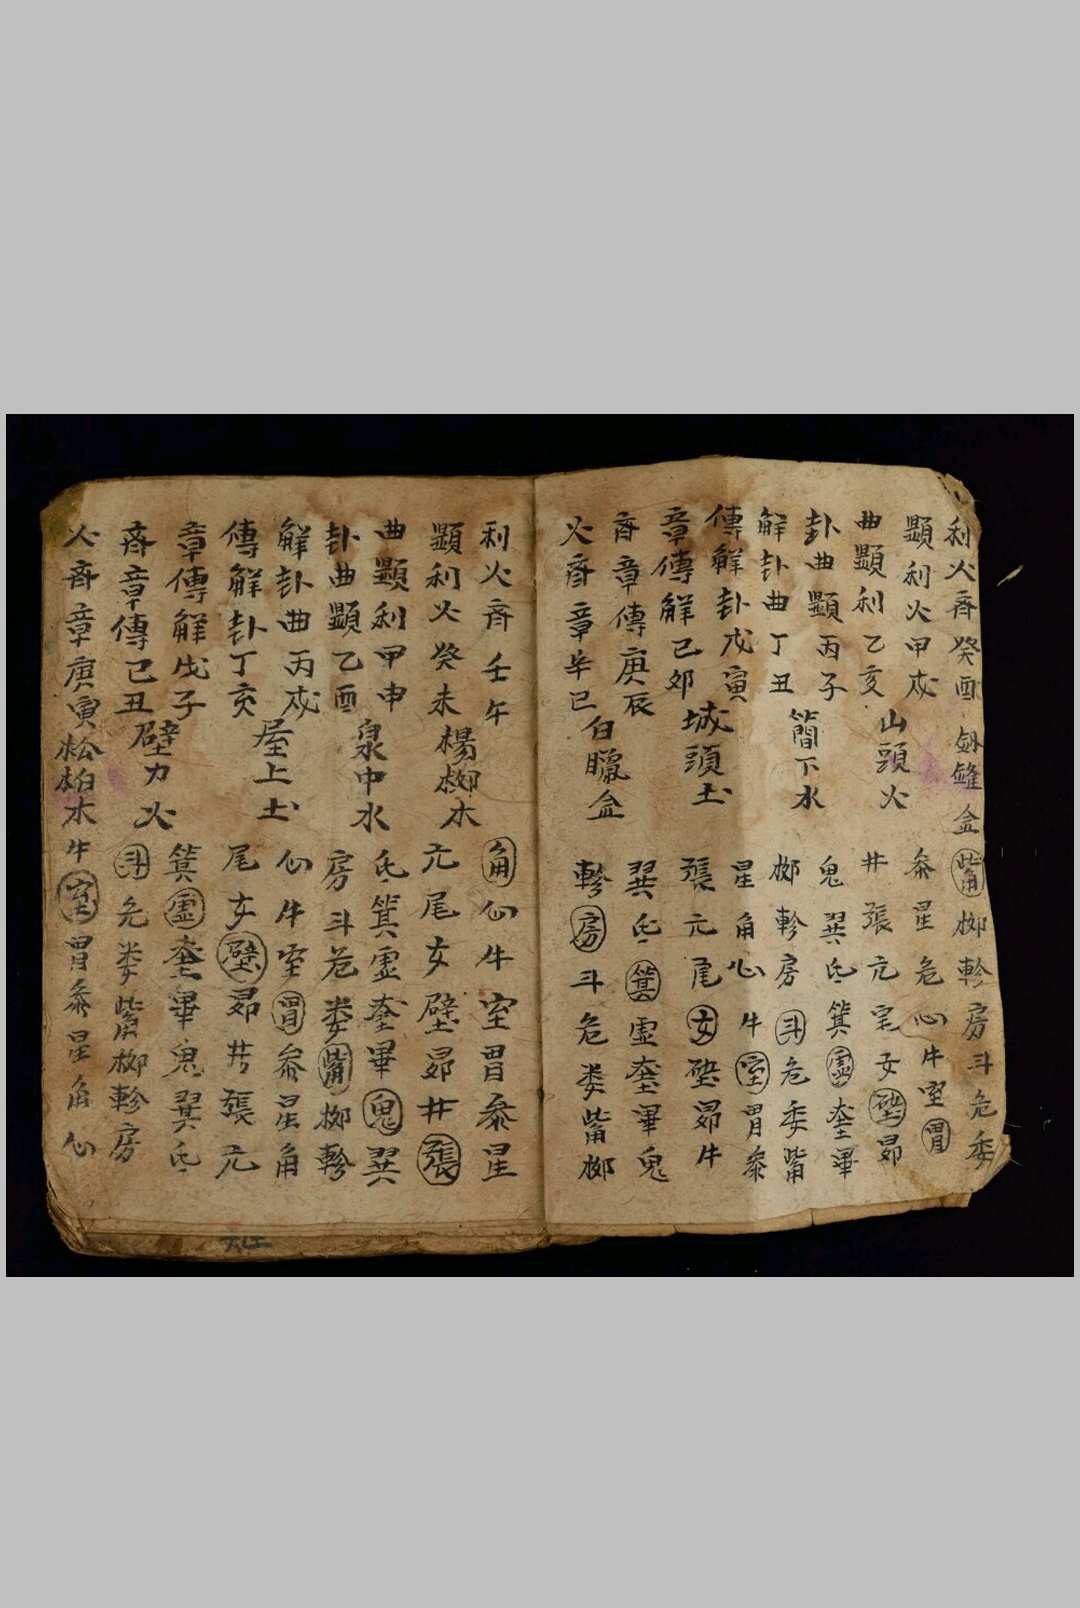 利火斉癸酉 劔鋒金 觜栁軫房斗危娄
顯利火甲戌 山頭火 參星危心牛室胃
曲顯利乙亥 井張亢女壁昴
卦曲顯丙子 簡下水 鬼翼氐箕虛奎畢
解卦曲丁丑 栁軫房斗危委觜
傳解卦戊寅 城頭土 星角心牛室胃參
章傳解己卯 張亢尾女壁昴牛
斉章傳庚辰 白臘金 翼氐箕虛奎畢鬼
火斉章辛巳 軫房斗危娄觜栁
利火斉壬午 楊栁木 角心牛室胃參星
顯利火癸未 亢尾女壁昴井張
曲顯利甲申 泉中水 氐箕虛奎畢鬼翼
卦曲顯乙酉 房斗危娄觜栁軫
解卦曲丙戌 屋上土 心牛室胃參星角
傳解卦丁亥 尾女壁昴井張亢
章傳解戊子 壁力火 箕虛奎畢鬼翼氐
斉章傳己丑 斗危娄觜栁軫房
火斉章庚寅 松栢木 牛室胃參星角心